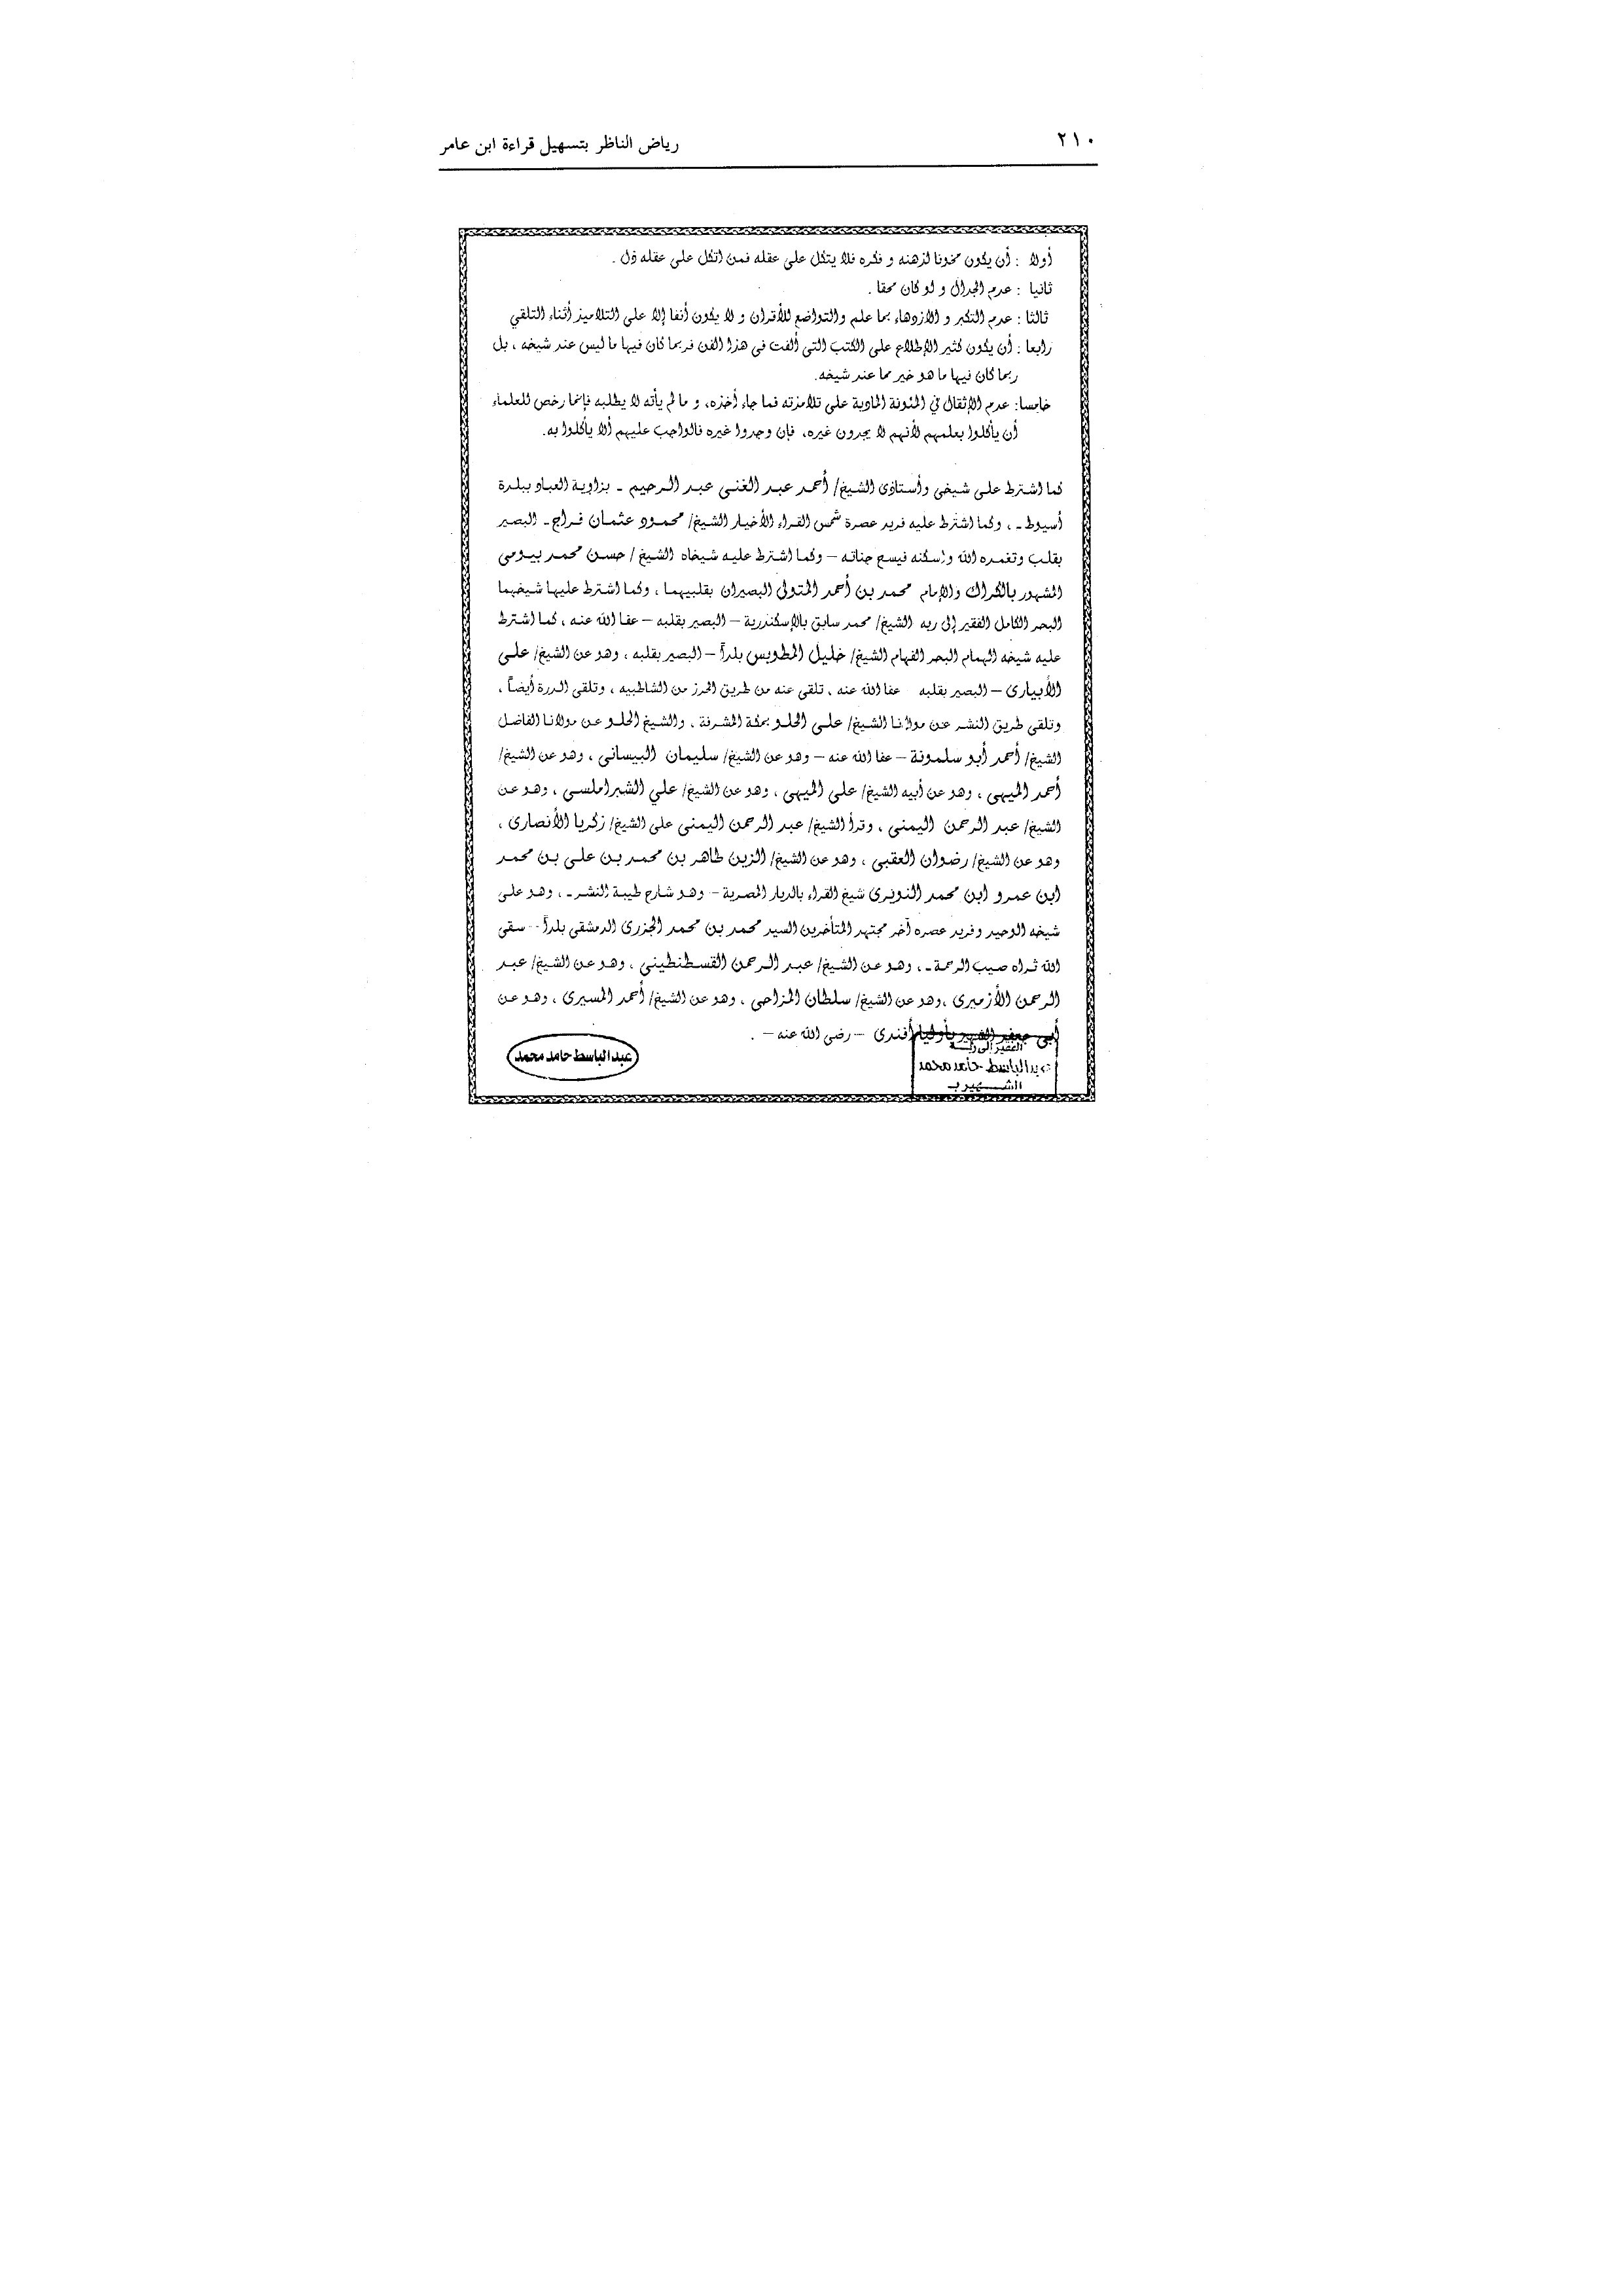 ٢١٠
رياض الناظر بتسهيل قراءة ابن عامر
أولا : أن يكون مخونا لذهنه و فكره فلا يتكل على عقله فمن اتكل على عقله ذل .
ثانيا : عدم الجدال و لو كان محقا .
ثالثا : عدم التكبر و الازدهاء بما علم والتواضع للأقران و لا يكون أنفا إلا على التلاميذ أثناء التلقي
رابعا : أن يكون كثير الإطلاع على الكتب التي ألفت في هذا الفن فربما كان فيها ما ليس عند شيخه ، بل
ربما كان فيها ما هو خير مما عند شيخه.
خامسا: عدم الإثقال في المئونة المادية على تلامذته فما جاء أخذه، و ما لم يأته لا يطلبه فإنما رخص للعلماء
أن يأكلوا بعلمهم لأنهم لا يجدون غيره، فإن وجدوا غيره فالواجب عليهم ألا يأكلوا به.
كما اشترط على شيخى وأستاذى الشيخ/ أحمد عبد الغنى عبد الرحيم ـ بزاوية العباد ببلدة
أسيوط ـ ، وكما اشترط عليه فريد عصرة شمس القراء الأخيار الشيخ/ محمود عثمان فراج ـ البصير
بقلب وتغمده الله وإسكنه فيسح جناته – وكما اشترط عليه شيخاه الشيخ / حسن محمد بيومى
المشهور بالكراك والإمام محمد بن أحمد المتولى البصيران بقلبيهما ، وكما اشترط عليها شيخهما
البحر الكامل الفقير إلى ربه الشيخ/ محمد سابق بالإسكندرية – البصير بقلبه – عفا الله عنه ، كما اشترط
عليه شيخه الهمام البحر الفهام الشيخ/ خليل المطوبس بلداً – البصير بقلبه ، وهو عن الشيخ/ على
الأبيارى – البصير بقلبه عفا الله عنه ، تلقى عنه من طريق الحرز من الشاطبيه ، وتلقى الدرة أيضاً ،
وتلقى طريق النشر عن مولانا الشيخ/ على الحلو بمكة المشرفة ، والشيخ الحلو عن مولانا الفاضل
الشيخ/ أحمد أبو سلمونة – عفا الله عنه – وهو عن الشيخ/ سليمان البيسانى ، وهو عن الشيخ/
أحمد الميهى ، وهو عن أبيه الشيخ/ على الميهى ، وهو عن الشيخ/ علي الشبراملسي ، وهو عن
الشيخ/ عبد الرحمن اليمنى ، وقرأ الشيخ/ عبد الرحمن اليمنى على الشيخ/ زكريا الأنصارى ،
وهو عن الشيخ/ رضوان العقبى ، وهو عن الشيخ/ الزين طاهر بن محمد بن على بن محمد
ابن عمرو ابن محمد النويرى شيخ القراء بالديار المصرية – وهو شارح طيبة النشر ـ ، وهو على
شيخه الوحيد وفريد عصره آخر مجتهد المتأخرين السيد محمد بن محمد الجزرى الدمشقى بلداً – سقى
الله ثراه صيب الرحمة ـ ، وهو عن الشيخ/ عبد الرحمن القسطنطيني ، وهو عن الشيخ/ عبد
الرحمن الأزميرى ، وهو عن الشيخ/ سلطان المزاحى ، وهو عن الشيخ/ أحمد المسيرى ، وهو عن
أبي جعفر الشهير بأوليا أفندى – رضى الله عنه – .
الفقير إلى ربه
عبد الباسط حامد محمد
الشهيرب
عبد الباسط حامد محمد